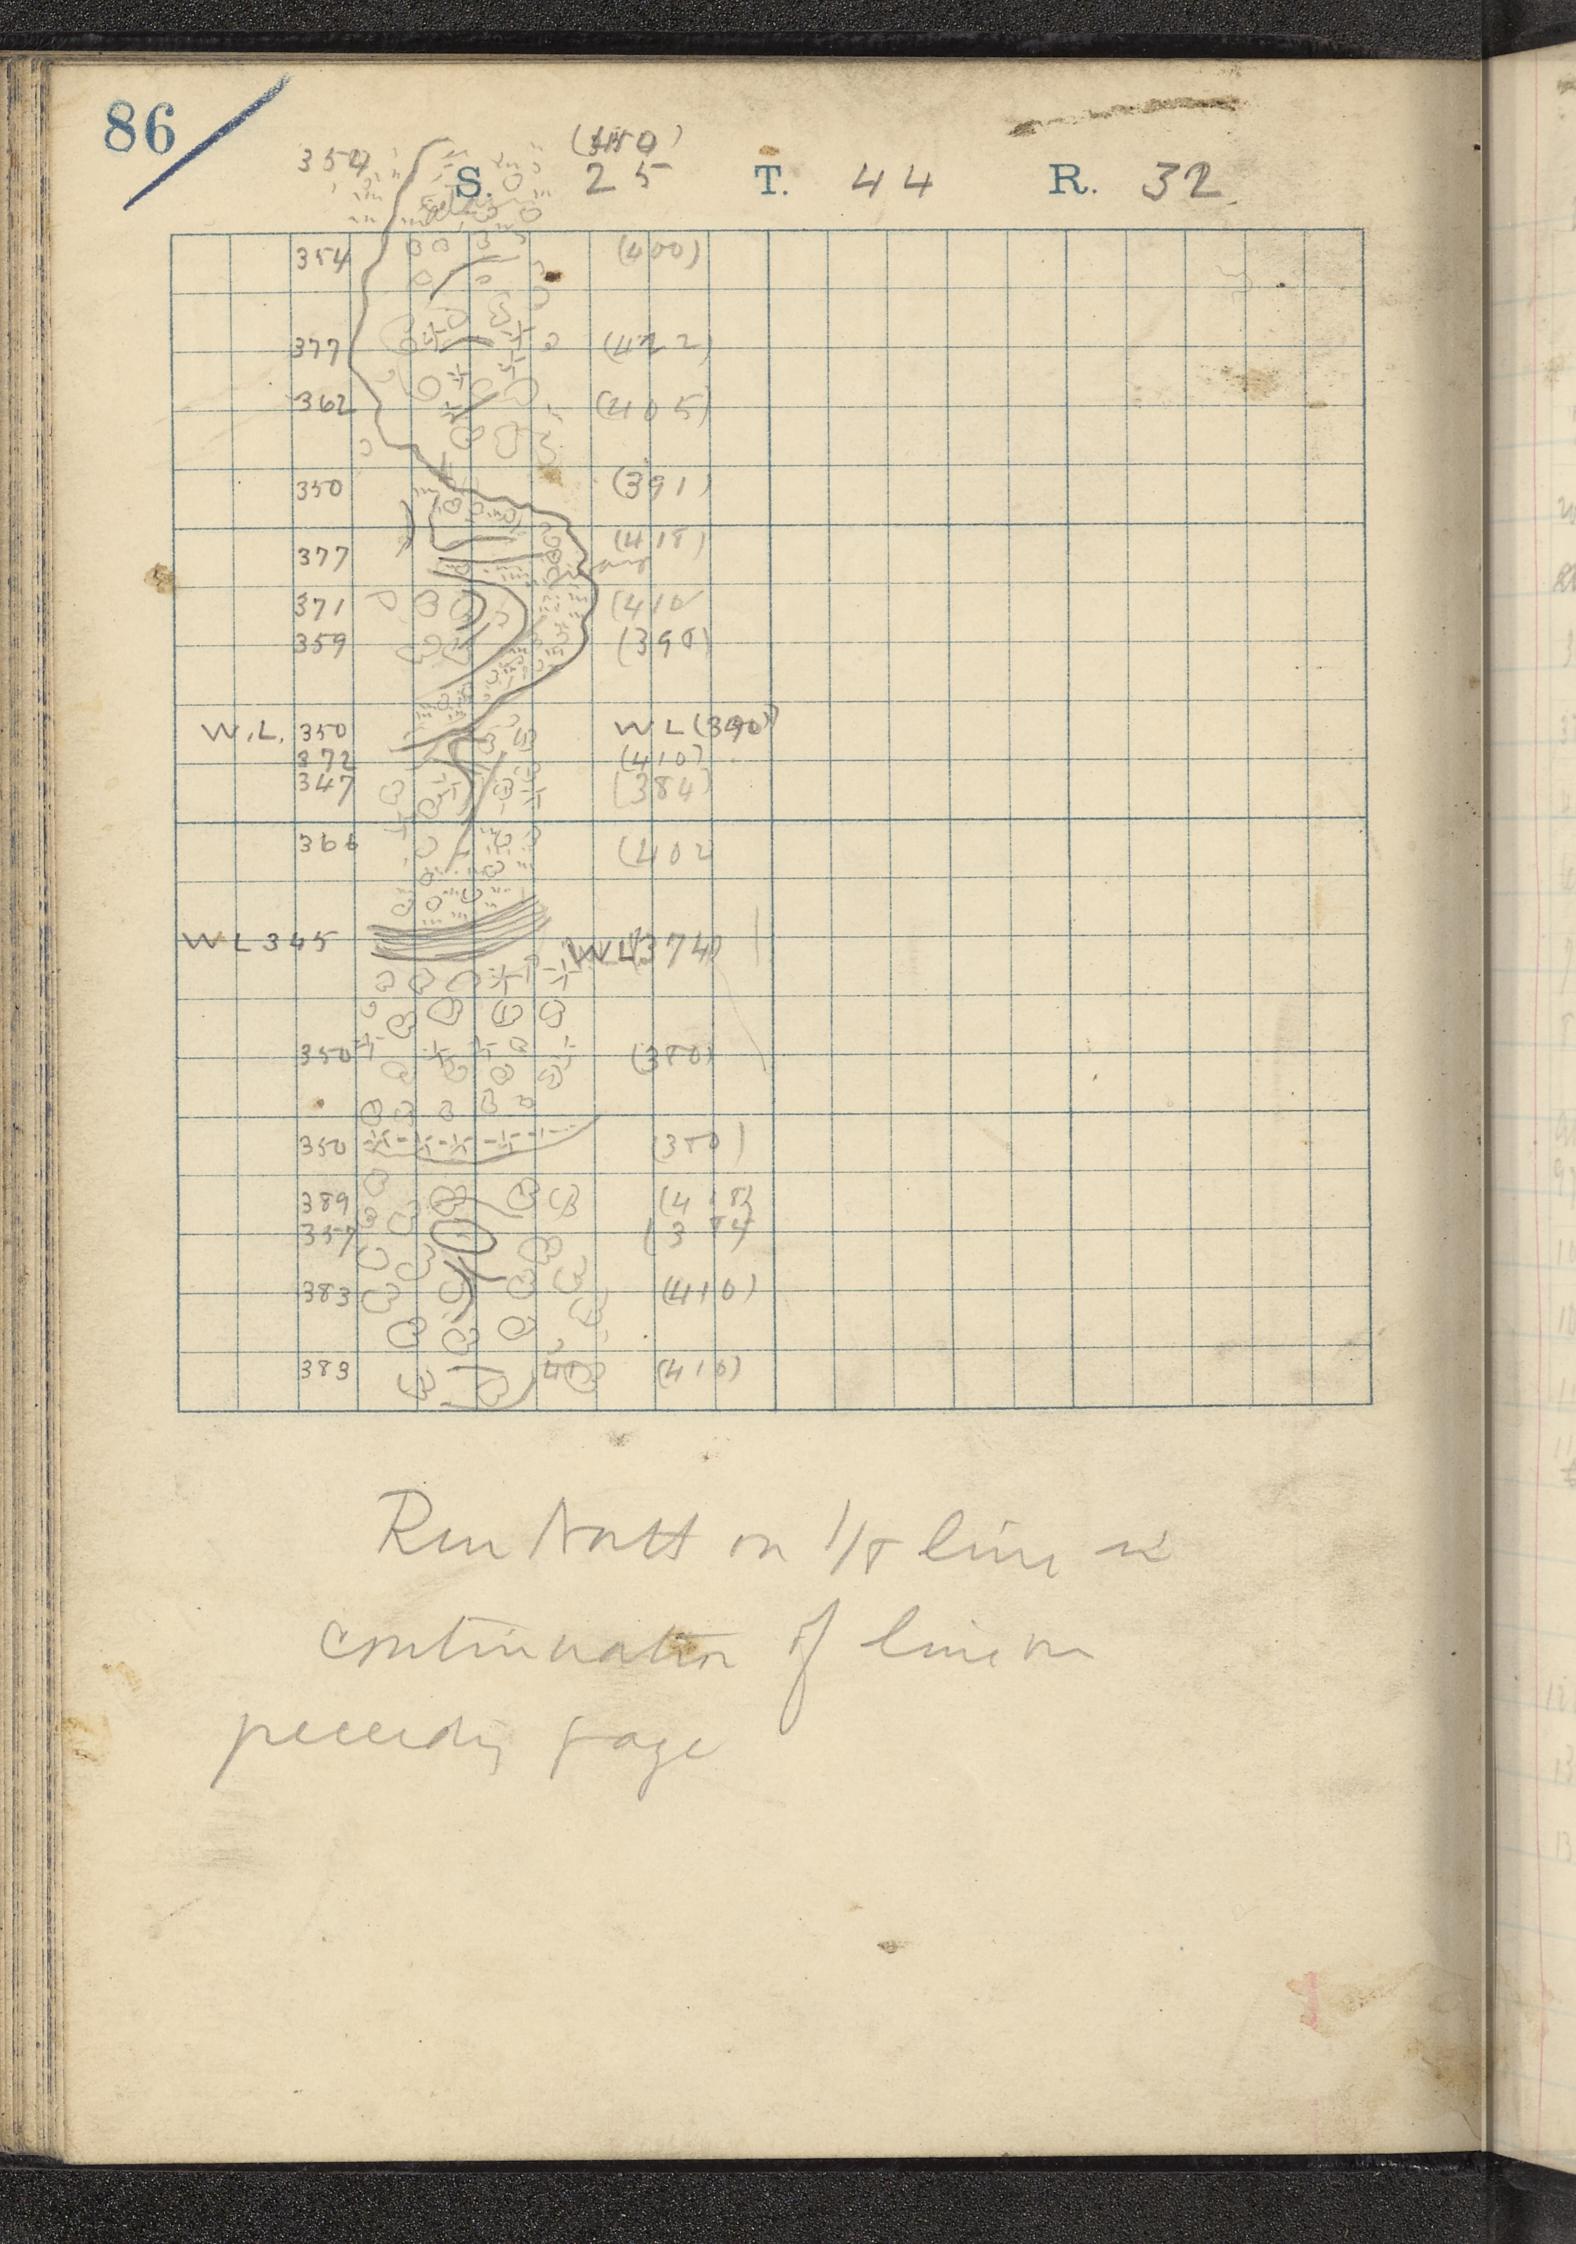 86
354
S. 25 T. 44 R. 32
354 (400)
377 (422)
362 (405)
350 (391)
377 (418)
371 (410
359 (398)
W.L. 350 WL (390)
372 (410)
347 (384)
366 (402
WL 345 WL (374)
350 (380)
350 (380)
389 (418)
357 (384
383 (410)
383 41 (410)
Run North on 1/8 line in
continuation of line on
preceding page